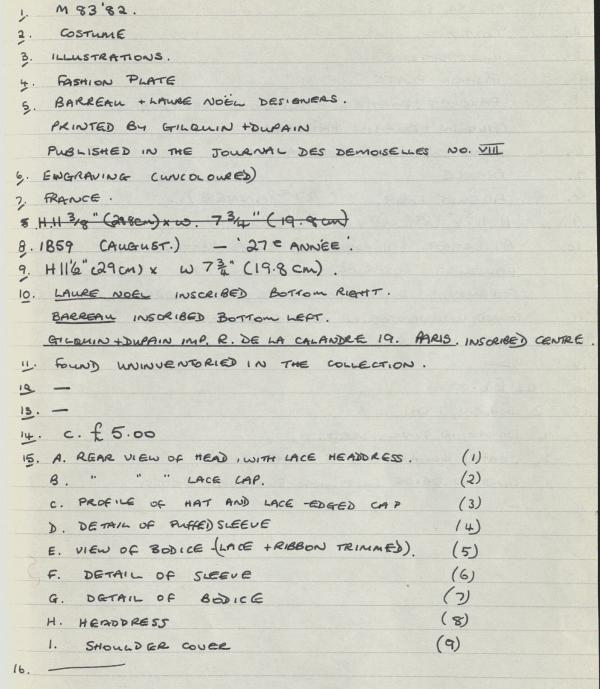 1. M 83'82.
2. COSTUME
3. ILLUSTRATIONS.
4. FASHION PLATE
5. BARREAU + LAURE NOËL DESIGNERS.
PRINTED BY GILQUIN + DUPAIN
PUBLISHED IN THE JOURNAL DES DEMOISELLES NO. VIII
6. ENGRAVING (UNCOLOURED)
7. FRANCE.
8 H.11 3/8" (29.8cm) x W. 7 3/4" (19.8cm)
8. 1859 (AUGUST.) — '27e ANNÉE'.
9. H11½" (29cm) x W 7¾" (19.8cm).
10. LAURE NOEL INSCRIBED BOTTOM RIGHT.
BARREAU INSCRIBED BOTTOM LEFT.
GILQUIN + DUPAIN IMP. R. DE LA CALANDRE 19. PARIS. INSCRIBED CENTRE.
11. FOUND UNINVENTORIED IN THE COLLECTION.
12 —
13. —
14. C. £5.00
15. A. REAR VIEW OF HEAD, WITH LACE HEADDRESS. (1)
B. " " " LACE CAP. (2)
C. PROFILE OF HAT AND LACE-EDGED CAP (3)
D. DETAIL OF PUFFED SLEEVE (4)
E. VIEW OF BODICE (LACE + RIBBON TRIMMED). (5)
F. DETAIL OF SLEEVE (6)
G. DETAIL OF BODICE (7)
H. HEADDRESS (8)
I. SHOULDER COVER (9)
16. —